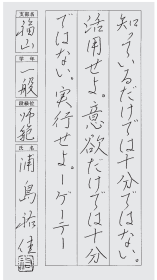 知っているだけでは十分ではない。
活用せよ。意欲だけでは十分
ではない、実行せよ。ーゲーテー
支部名
福山
学年
一般
段級位
師範
氏名
浦島裕佳